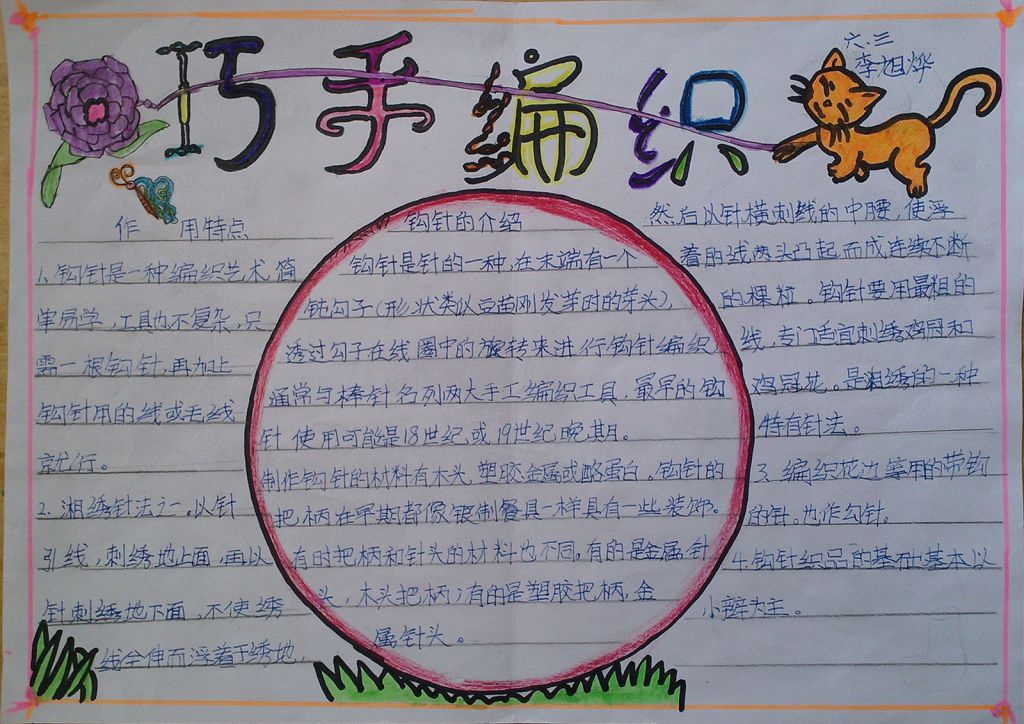 巧手编织
六.三
李旭烨
作 用特点
1、钩针是一种编织艺术,简
单易学,工具也不复杂,只
需一根钩针,再加上
钩针用的线或毛线
就行。
2、湘绣针法之一。以针
引线,刺绣地上面,再以
针刺绣地下面,不使绣
线全伸而浮着于绣地,
钩针的介绍
钩针是针的一种,在末端有一个
钝勾子(形状类似豆苗刚发芽时的芽头),
透过勾子在线圈中的旋转来进行钩针编织
通常与棒针名列两大手工编织工具,最早的钩
针使用可能是18世纪或19世纪晚期。
制作钩针的材料有木头,塑胶,金属或酪蛋白。钩针的
把柄在早期都像银制餐具一样具有一些装饰。
有时把柄和针头的材料也不同,有的是金属针
头,木头把柄;有的是塑胶把柄,金
属针头。
然后以针横刺线的中腰,使浮
着的线两头凸起而成连续不断
的粿粒。钩针要用最粗的
线,专门适宜刺绣鸡冠和
鸡冠花。是粗绣的一种
特有针法。
3、编织花边等用的带钩
的针。也作勾针。
4、钩针织品的基础基本以
小辫为主。